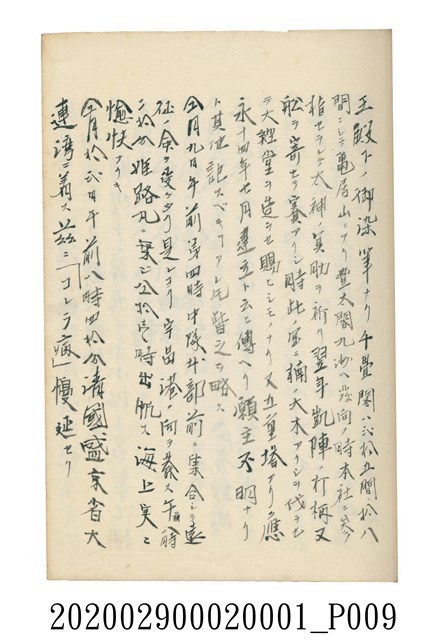 王殿下ノ御染筆ナリ千畳閣ハ弐拾五間拾八
間ニシテ亀居山ニアリ豊太閤九州ヘ発向ノ時本社ニ
指セラレテ太神ノ冥助ヲ祈リ翌年凱陣ノ行桐又
舩ヲ寄セラ賽アリシ時此ノ宮ニ楠ノ大木アリシヲ伐ラセ
テ大経堂ヲ造ラセ賜ヒシモノナリ又五重塔アリ應
永十四年七月建立ト云ヒ傳ヘリ願主不明ナリ
ト其他記スベキアレ𪜈皆之ヲ略ス
仝月九日午前第四時中隊本部前ニ集合シテ遠
征ノ命ヲ受ケタリ是レヨリ宇品港ニ向テ発ス午前八時
二拾分姫路丸ニ乗ジ公拾弐時出航ス海上実ニ
愉快アリキ
仝月拾弐日午前八時四拾分清國盛京省大
連湾ニ着ス茲ニ「コレラ病」慢延セリ
202002900020001_P009